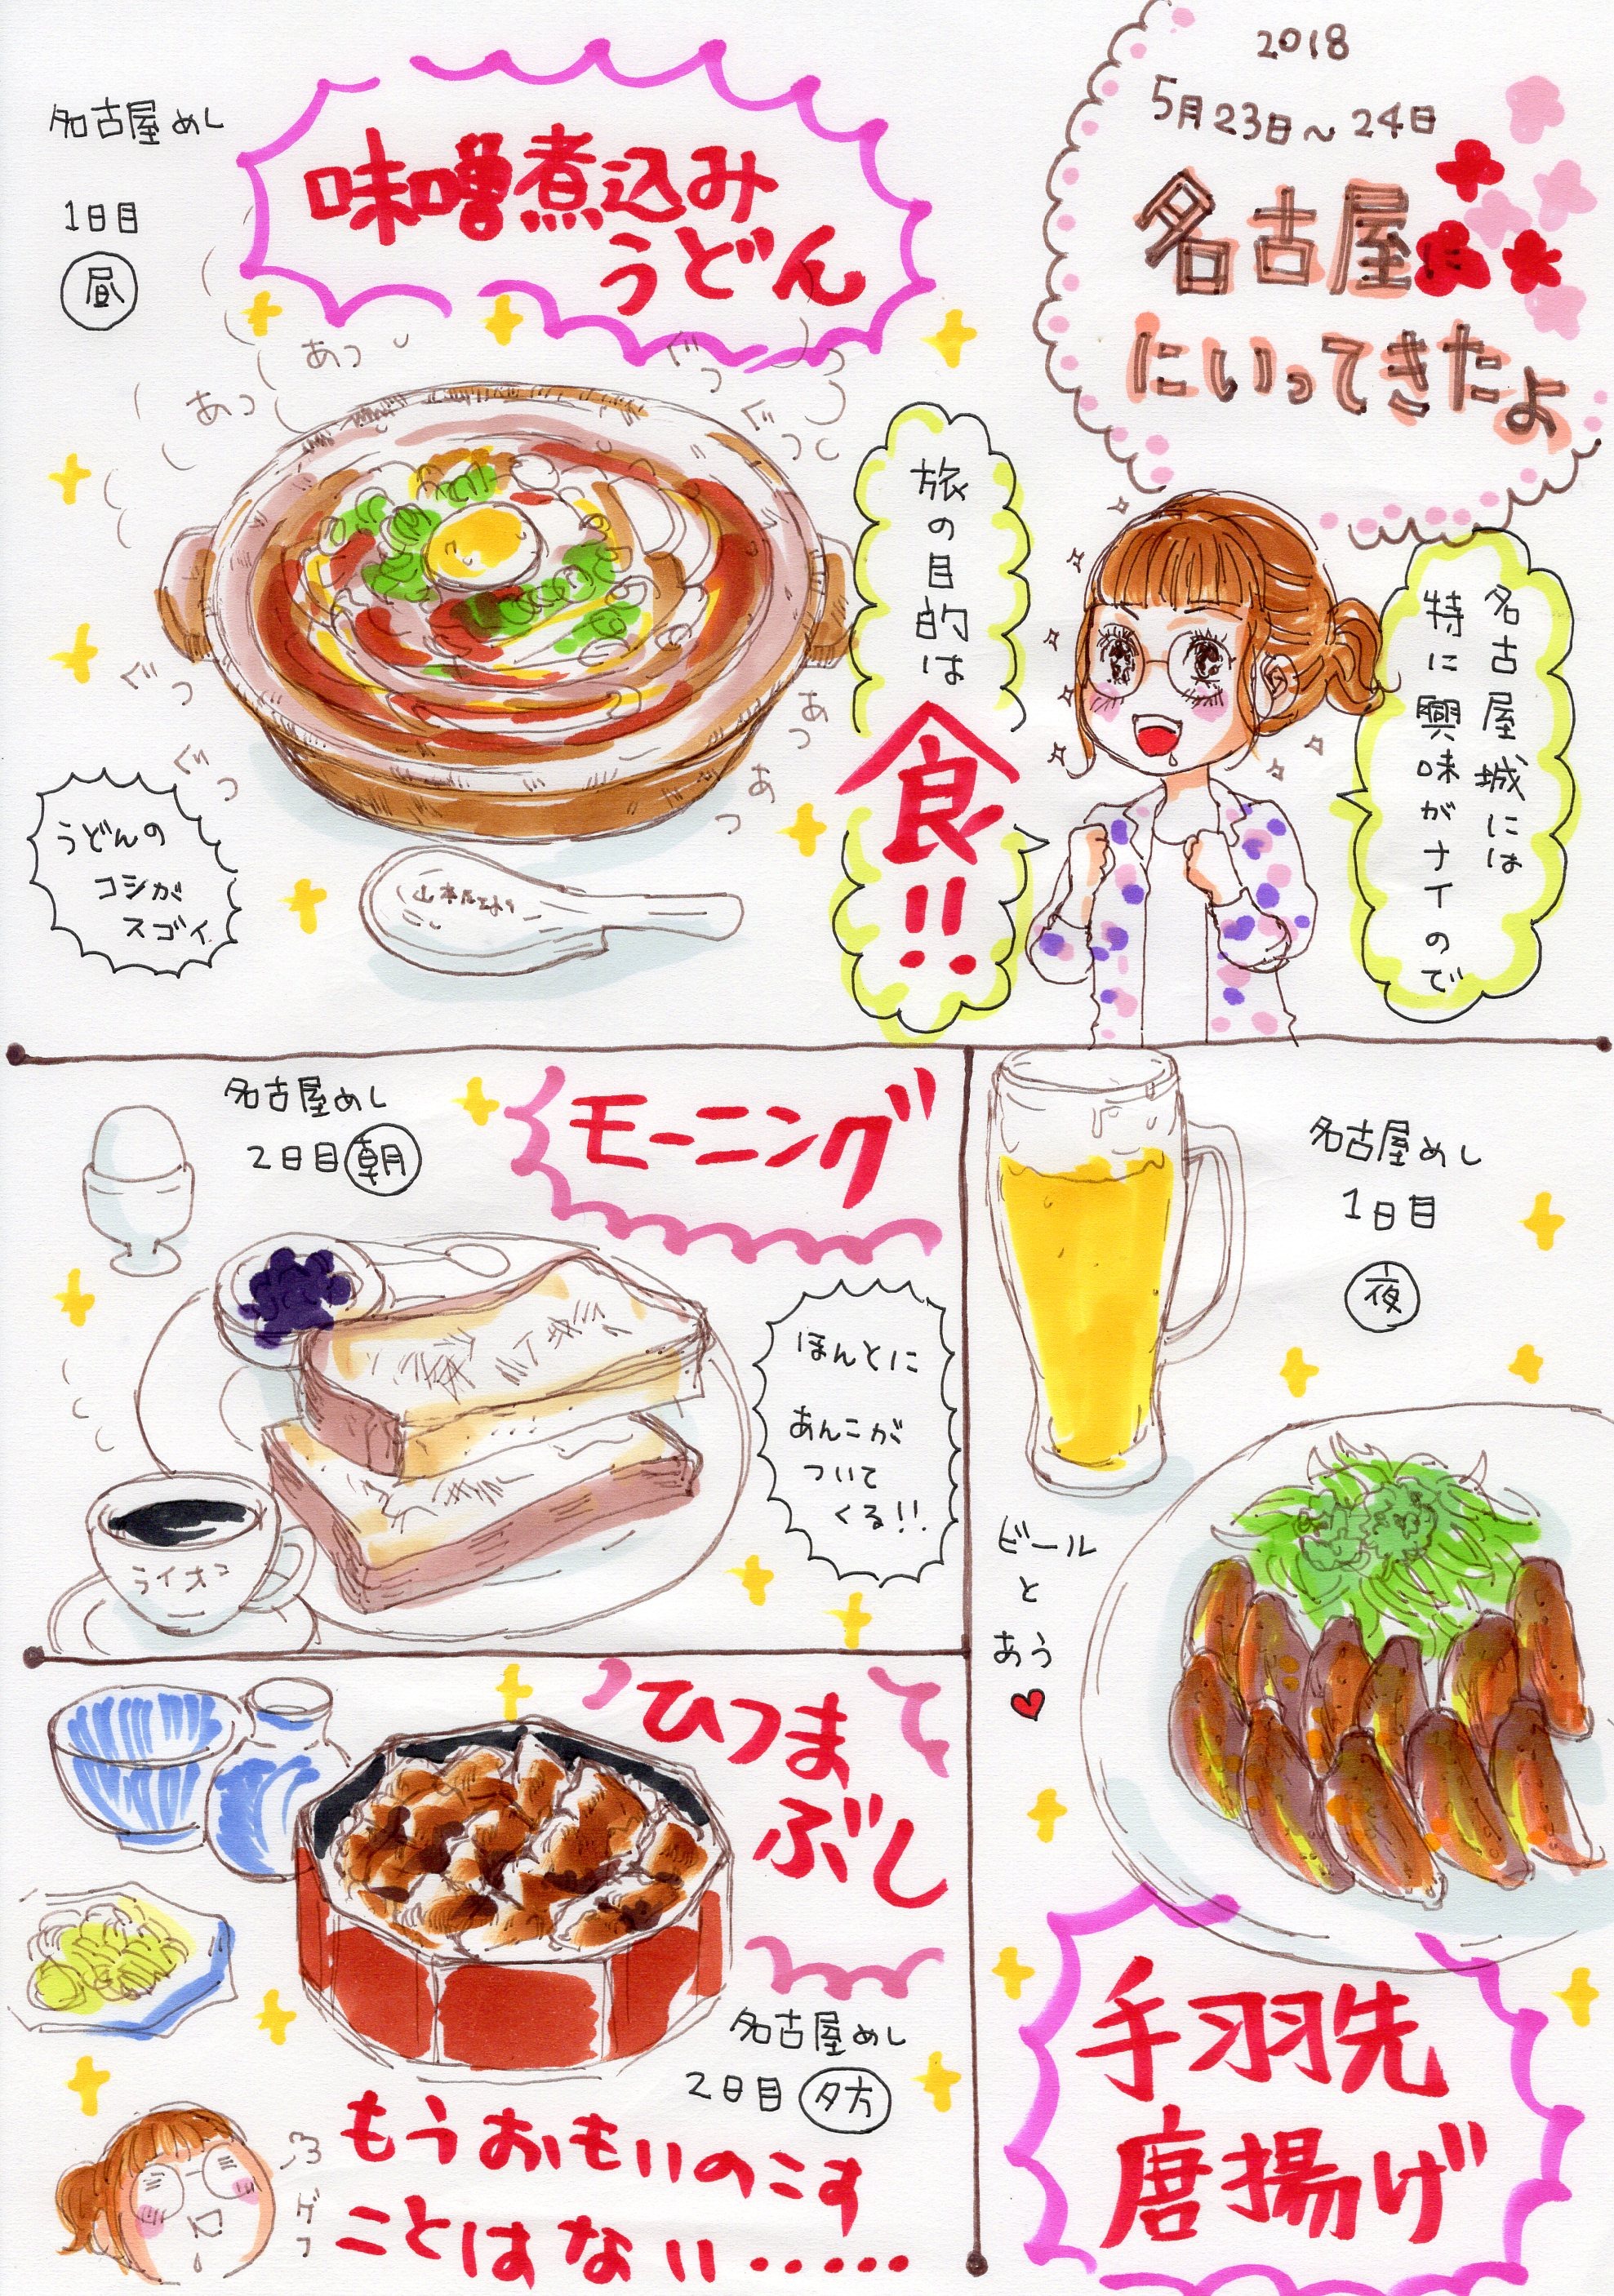 2018
5月23日～24日
名古屋に
にいってきたよ
名古屋城には
特に興味がナイので
旅の目的は
食!!
名古屋めし
1日目
昼
味噌煮込み
うどん
あつ
あつ
ぐつ
ぐつ
ぐつ
ぐつ
あつ
あつ
うどんの
コシが
スゴイ
名古屋めし
1日目
夜
ビール
と
あう
手羽先
唐揚げ
名古屋めし
2日目 朝
モーニング
ほんとに
あんこが
ついて
くる!!
ライオン
ひつま
ぶし
名古屋めし
2日目 夕方
ゲフ
もうおもいのこす
ことはない‥‥‥